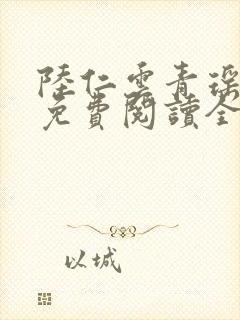 陸仁雲青瑤
免費閱讀全
以城